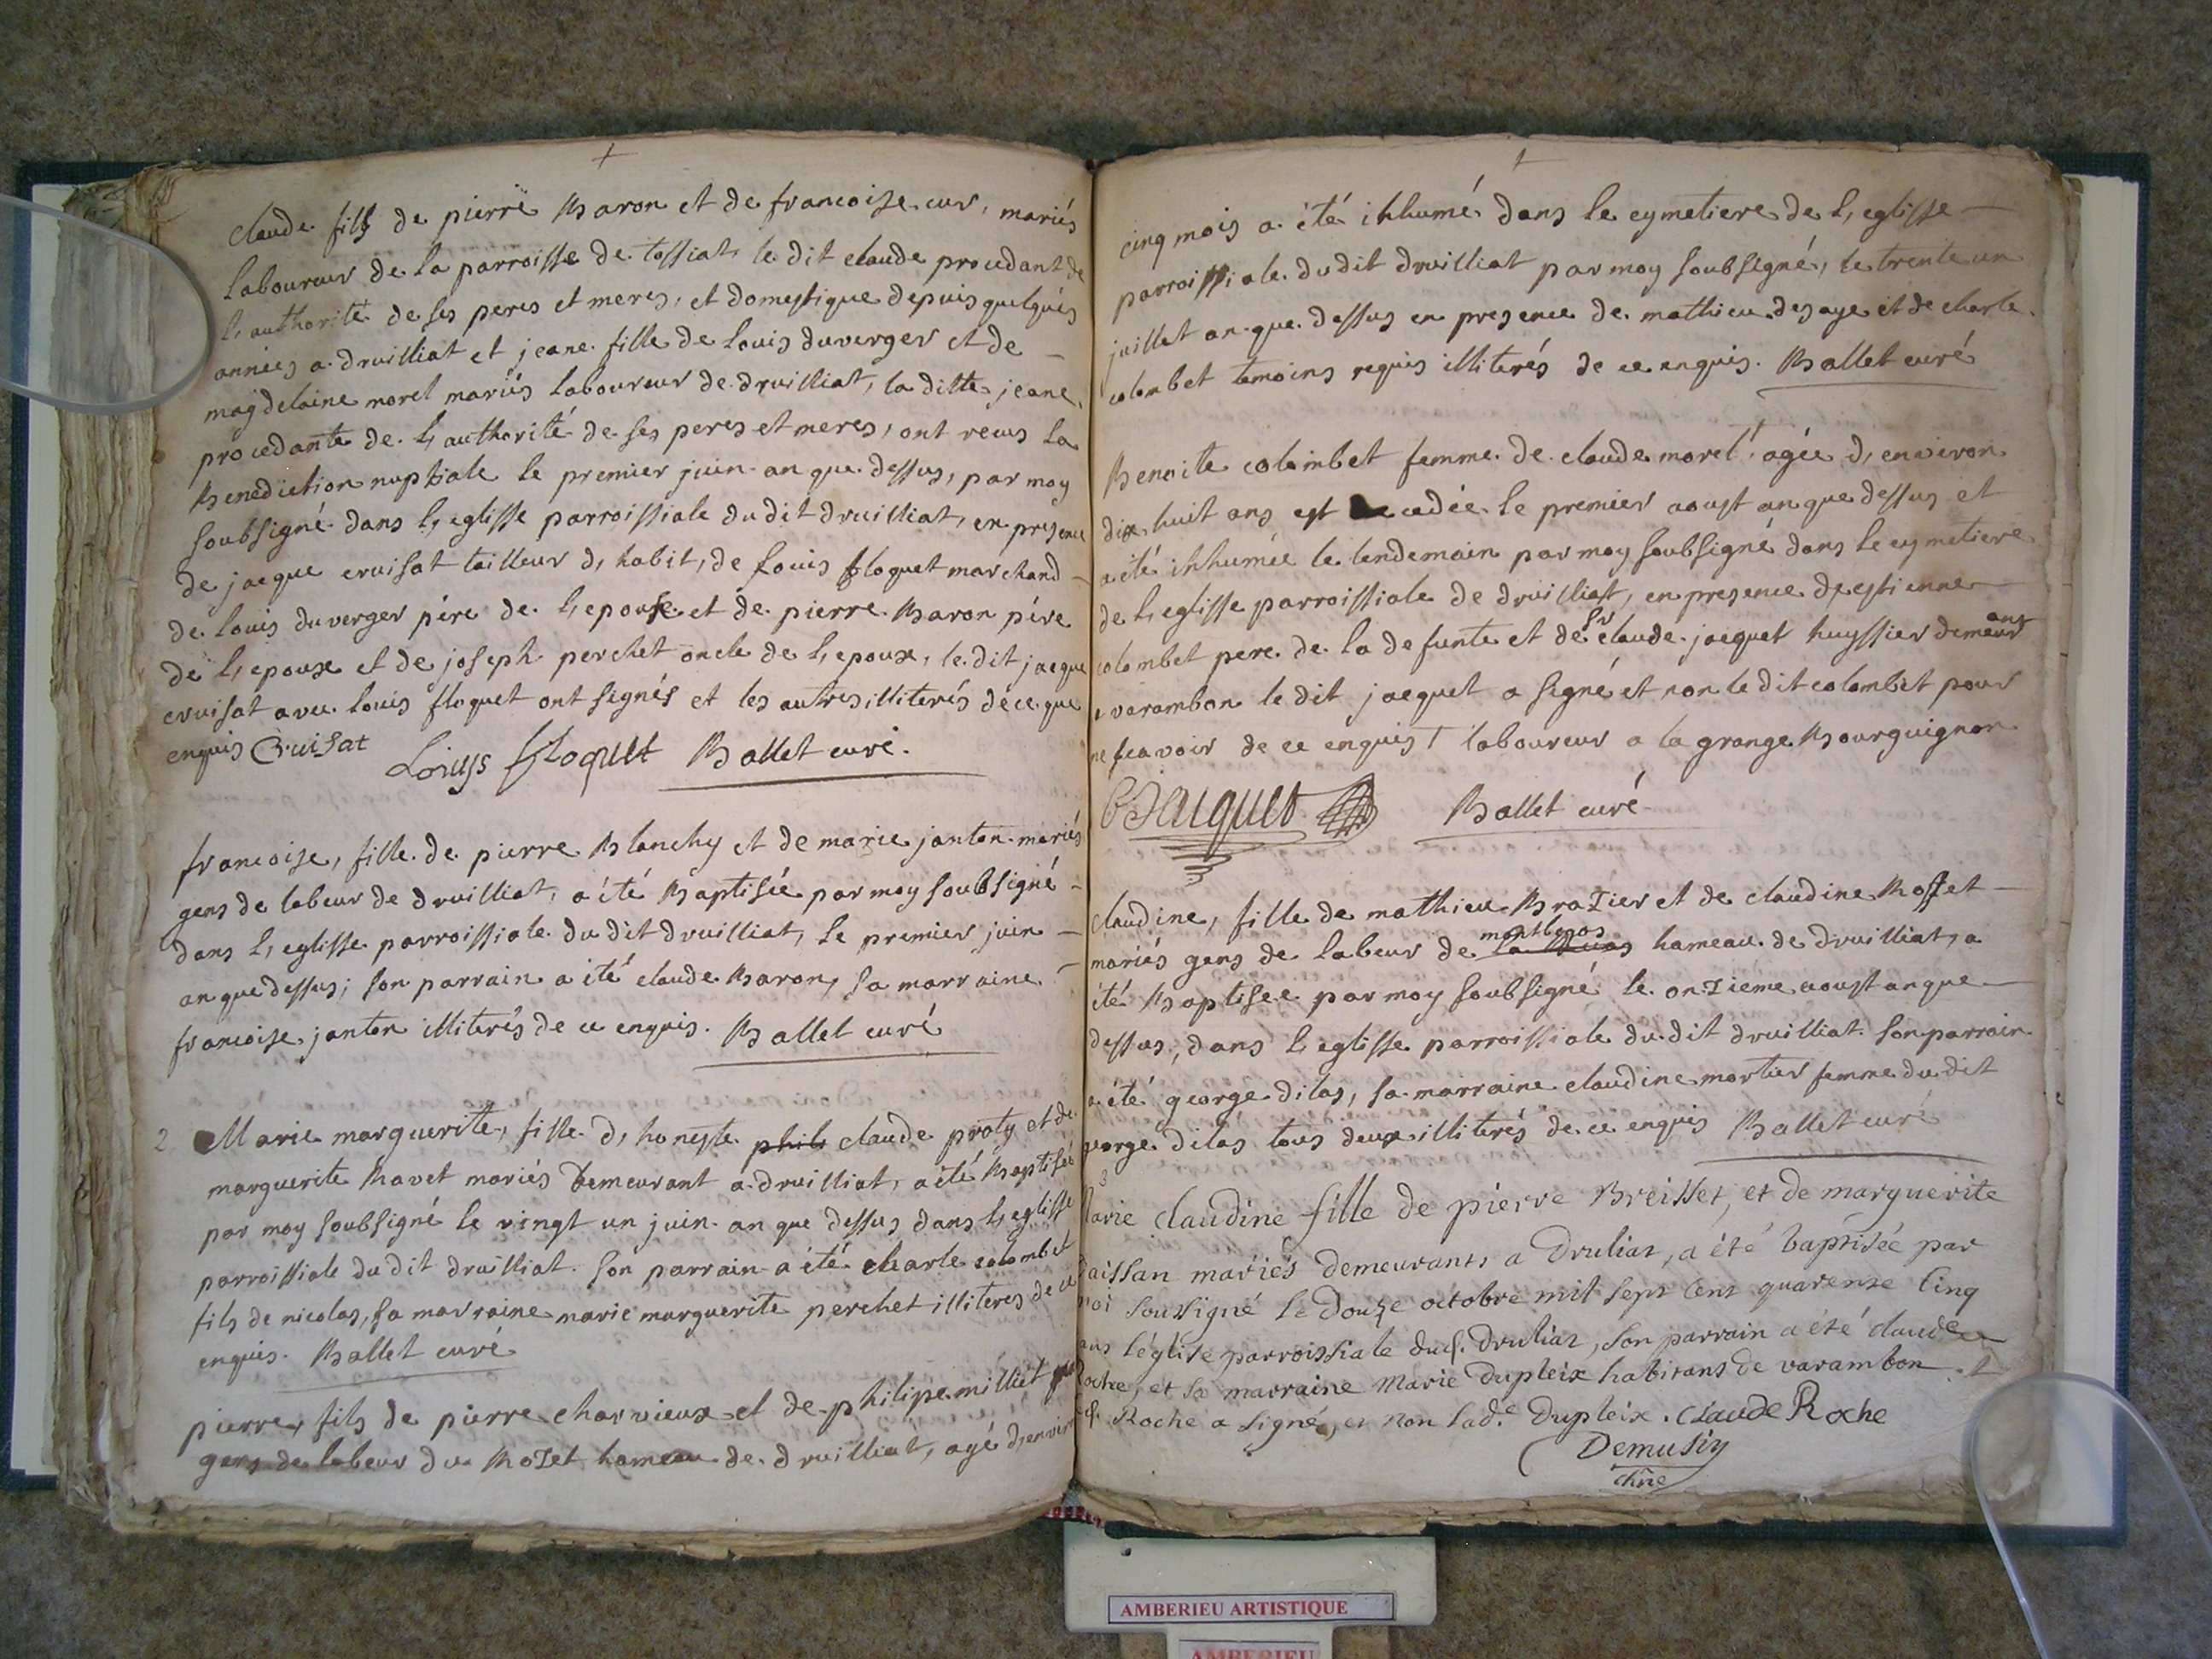 claude fils de pierre Baron et de francoise cur, mariés
laboureur de la parroisse de tossiat, le dit claude procedant de
l, authorité de ses peres et meres, et domestique depuis quelques
années a druilliat et jeane fille de louis duverger et de
magdelaine morel mariés laboureur de druilliat, la ditte jeane
procedante de l, authorité de ses peres et meres, ont recus la
Benediction nuptiale le premier juin an que dessus, par moy
soubsigné dans l, eglisse parroissiale du dit druilliat, en presence
de jacque cruisat tailleur d, habit, de louis floquet marchand
de louis duverger père de l, epouse et de pierre Baron père
de l, epoux et de joseph perchet oncle de l, epoux, le dit jacque
cruisat avec louis floquet ont signés et les autres illiterés de ce que
enquis Cruisat Louys floquet Ballet curé.
francoise, fille de pierre Blanchy et de marie janton mariés
gens de labeur de druilliat, a été Baptisée par moy soubsigné
dans l, eglisse parroissiale du dit druilliat, le premier juin
an que dessus; son parrain a été claude Baron, sa marraine
francoise janton illiterés de ce enquis. Ballet curé
2 Marie marguerite, fille d, honeste phili claude proty et de
marguerite Ravet mariés demeurant a druilliat, a été Baptisée
par moy soubsigné le vingt un juin an que dessus dans l, eglisse
parroissiale du dit druilliat. son parrain a été charle colombet
fils de nicolas, sa marraine marie marguerite perchet illiteres de ce
enquis. Ballet curé
pierre, fils de pierre charvieux et de philipe milliet
gens de labeur du Rozet hameau de druilliat, agé d, environ
cinq mois a été ihhumé dans le cymetiere de l, eglisse
parroissiale du dit druilliat par moy soubsigné, le trente un
juillet an que dessus en presence de mathieu desaye et de charle
colombet temoins requis illiterés de ce enquis. Ballet curé
Benoite colombet femme de claude morel agée d, environ
dix huit ans est decedée le premier aoust an que dessus et
a été ihhumée le lendemain par moy soubsigné dans le cymetiere
de l, eglisse parroissiale de druilliat, en presence d, estienne
colombet pere de la defunte et de sr claude jacquet huyssier demeurant
a varambon le dit jacquet a signé et non le dit colombet pour
ne scavoir de ce enquis † laboureur a la grange Bourguignon
C Jacquet Ballet curé
claudine, fille de mathieu Brazier et de claudine Rosset
mariés gens de labeur de montbegos hameau de druilliat, a
été Baptisée par moy soubsigné le onzieme aoust an que
dessus, dans l, eglisse parroissiale du dit druilliat son parrain
a été george dilas, sa marraine claudine mortier femme du dit
george dilas tous deux illiterés de ce enquis Ballet curé
3
Marie claudine fille de pierre Breisset, et de marguerite
aissan mariés demeurants a Druliat, a été baptisée par
moi soussigné le Douze octobre mil sept cent quarente Cinq
dans l'église parroissiale dud. Druliat, son parrain a été claude
Roche, et sa marraine Marie Dupleix habitans de varambon. l
ed. Roche a signé, et non lad.e Dupleix. Claude Roche
Demusiy
chne
AMBERIEU ARTISTIQUE
AMBERIEU